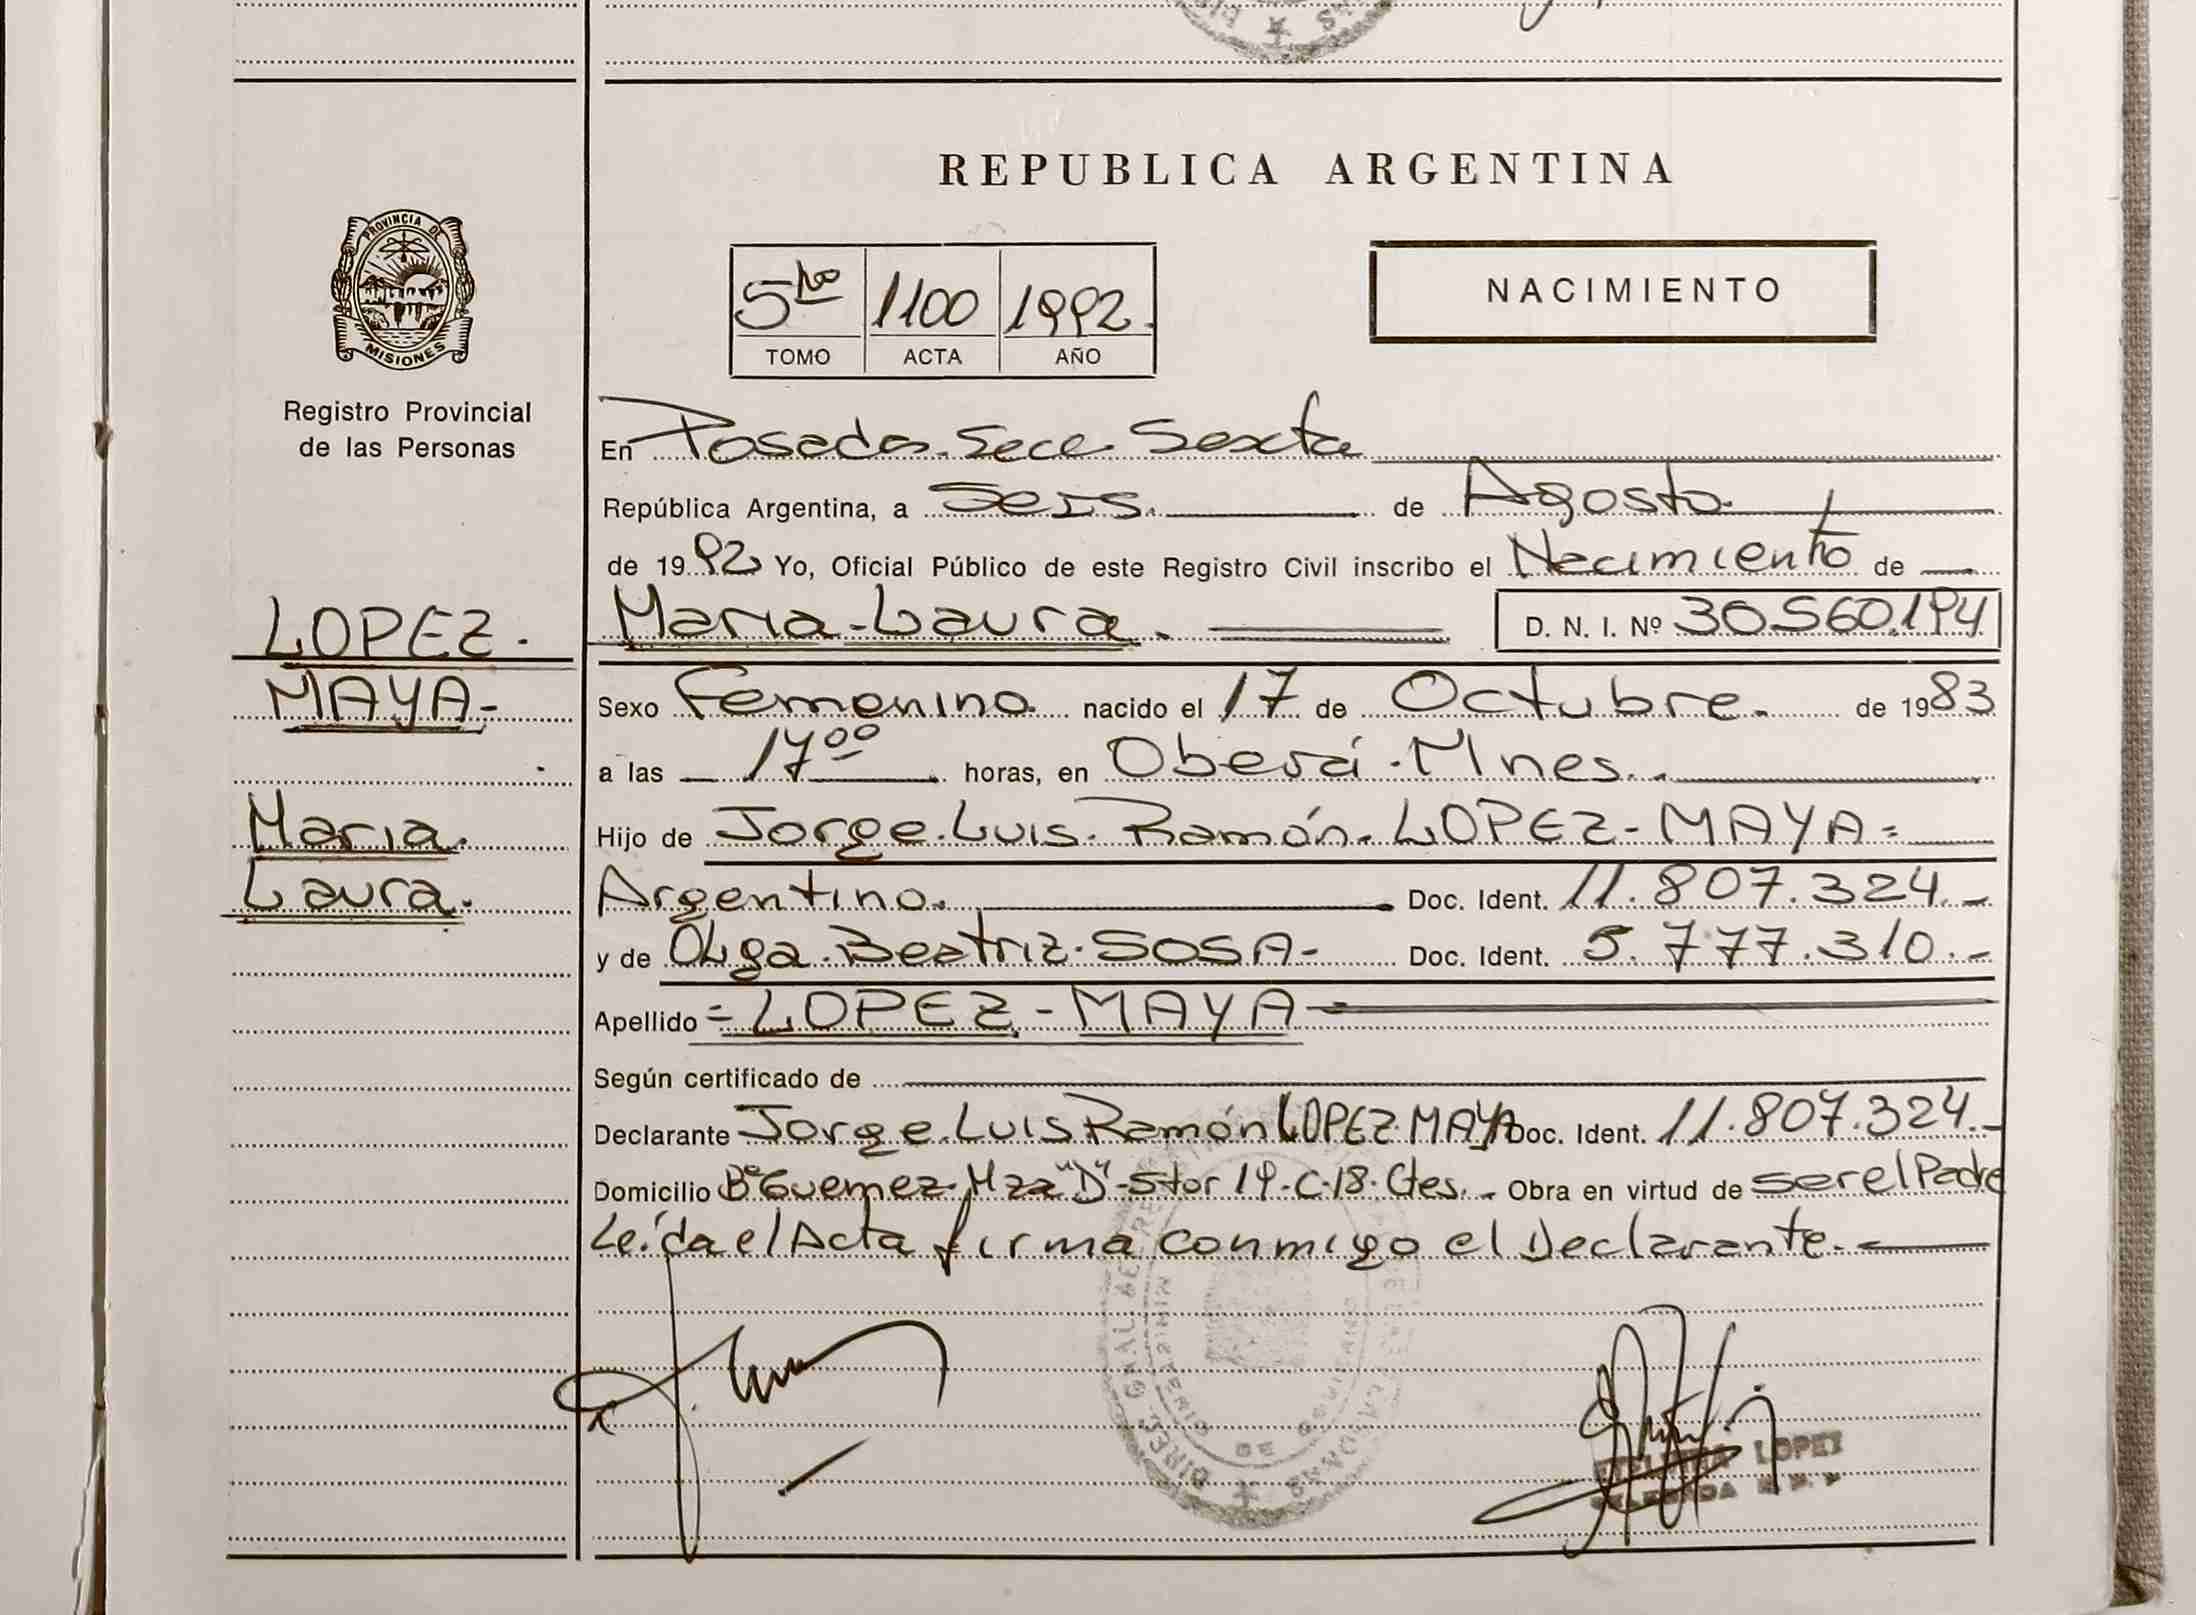 REPUBLICA ARGENTINA
PROVINCIA DE
MISIONES
Registro Provincial
de las Personas
5to 1100 1992.
TOMO ACTA AÑO
NACIMIENTO
En Posadas. Secc. Sexta
República Argentina, a Seis. de Agosto.
de 1992 Yo, Oficial Público de este Registro Civil inscribo el Nacimiento de
LOPEZ-
MAYA-
Maria.
Laura.
Maria-Laura. D. N. I. Nº 30.560.194
Sexo Femenino. nacido el 17 de Octubre. de 1983
a las 17⁰⁰ horas, en Oberá-Mnes.
Hijo de Jorge-Luis-Ramón-LOPEZ-MAYA=
Argentino. Doc. Ident. 11.807.324.-
y de OLga-Beatriz-SOSA- Doc. Ident. 5.777.310.-
Apellido =LOPEZ-MAYA
Según certificado de
Declarante Jorge-Luis Ramón LOPEZ-MAYA Doc. Ident. 11.807.324.-
Domicilio B° Guemez-Mza "D"-Stor 19-C-18-Ctes.- Obra en virtud de ser el Padre
Leída el Acta firma conmigo el Declarante.
LOPEZ